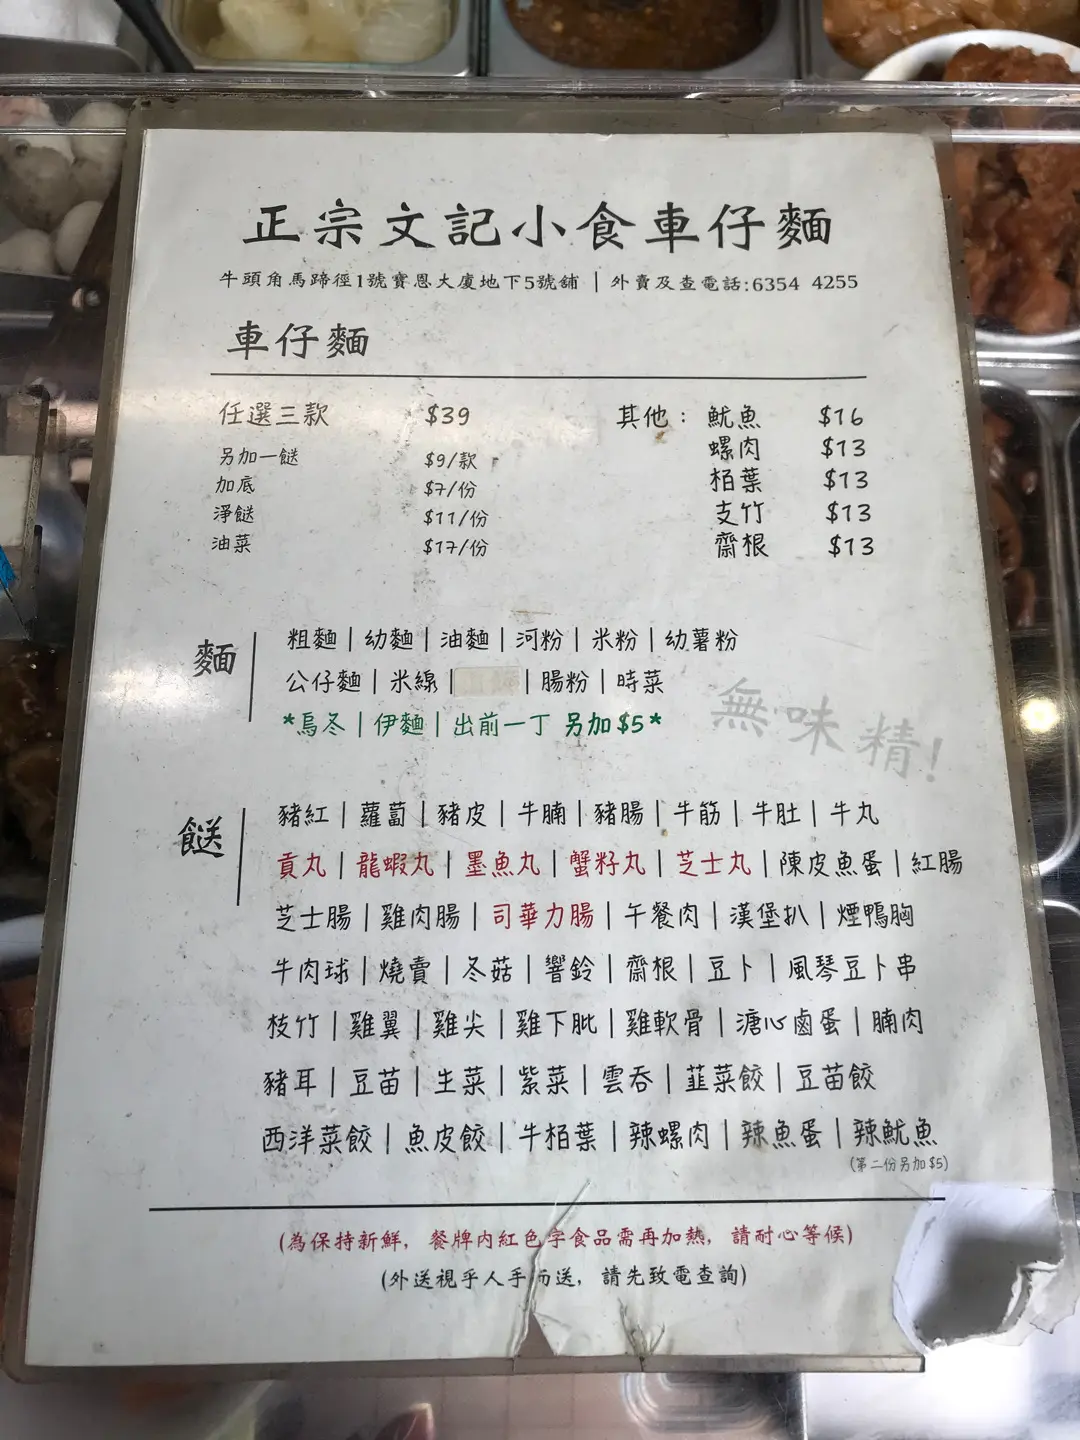 正宗文記小食車仔麵
牛頭角馬蹄徑1號寶恩大廈地下5號舖 | 外賣及查電話:6354 4255
車仔麵
任選三款 $39
另加一餸 $9/款
加底 $7/份
淨餸 $11/份
油菜 $17/份
其他: 魷魚 $16
螺肉 $13
栢葉 $13
支竹 $13
齋根 $13
麵
粗麵 | 幼麵 | 油麵 | 河粉 | 米粉 | 幼薯粉
公仔麵 | 米線 | | 腸粉 | 時菜
*烏冬 | 伊麵 | 出前一丁 另加$5*
無味精!
餸
豬紅 | 蘿蔔 | 豬皮 | 牛腩 | 豬腸 | 牛筋 | 牛肚 | 牛丸
貢丸 | 龍蝦丸 | 墨魚丸 | 蟹籽丸 | 芝士丸 | 陳皮魚蛋 | 紅腸
芝士腸 | 雞肉腸 | 司華力腸 | 午餐肉 | 漢堡扒 | 煙鴨胸
牛肉球 | 燒賣 | 冬菇 | 響鈴 | 齋根 | 豆卜 | 風琴豆卜串
枝竹 | 雞翼 | 雞尖 | 雞下肶 | 雞軟骨 | 溏心鹵蛋 | 腩肉
豬耳 | 豆苗 | 生菜 | 紫菜 | 雲吞 | 韮菜餃 | 豆苗餃
西洋菜餃 | 魚皮餃 | 牛栢葉 | 辣螺肉 | 辣魚蛋 | 辣魷魚
(第二份另加$5)
(為保持新鮮, 餐牌內紅色字食品需再加熱, 請耐心等候)
(外送視乎人手而送, 請先致電查詢)